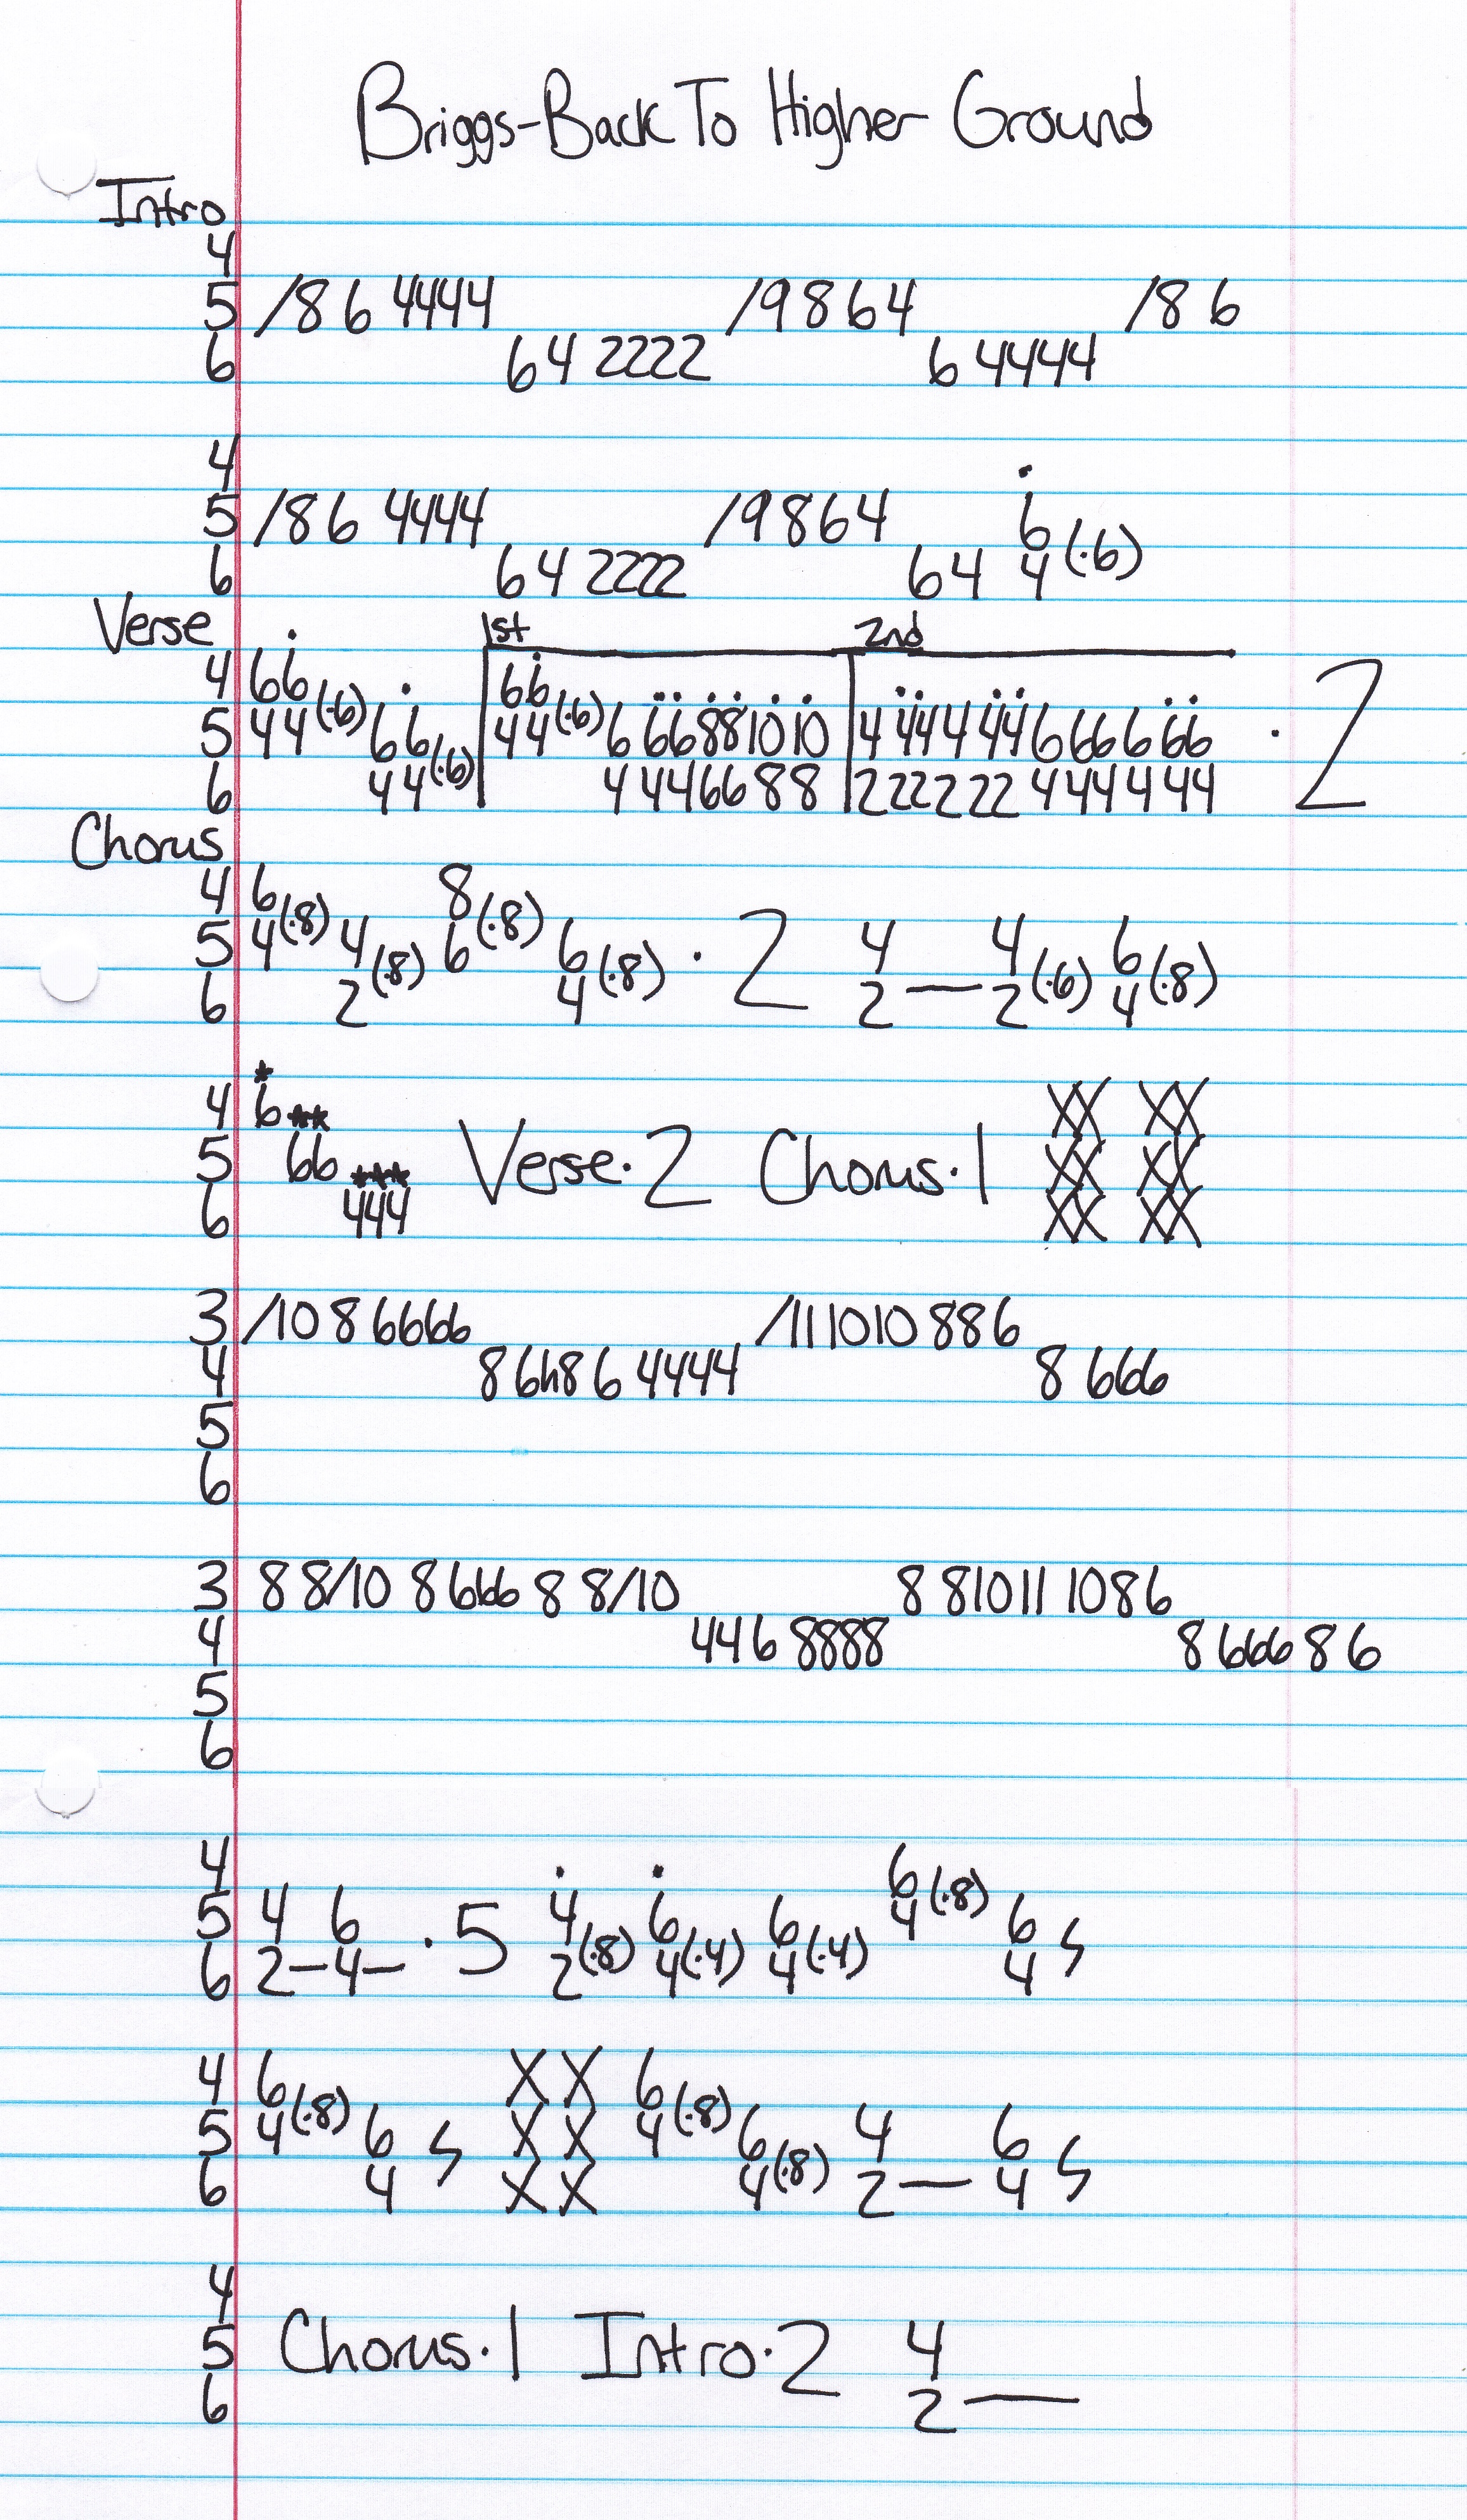 Briggs-Back To Higher Ground
Intro
4
5 /8 6 4444 /9 8 6 4 /8 6
6 6 4 2222 6 4444
4
5 /8 6 4444 /9 8 6 4 6
6 6 4 2222 6 4 4 (·6)
Verse 1st 2nd
4 6 6 6 6
5 4 4 (·6) 6 6 4 4 (·6) 6 6 6 8 8 10 10 4 4 4 4 4 4 6 6 6 6 6 6 · 2
6 4 4 (·6) 4 4 4 6 6 8 8 2 2 2 2 2 2 4 4 4 4 4 4
Chorus
4 6 8
5 4 (·8) 4 6 (·8) 6 · 2 4 4 6
6 2 (·8) 4 (·8) 2 — 2 (·6) 4 (·8)
4 6* XX XX
5 66** Verse · 2 Chorus · 1 XX XX
6 444*** XX XX
3 /10 8 6666 /11 10 10 8 8 6
4 8 6h8 6 4444 8 666
5
6
3 8 8/10 8 666 8 8/10 8 8 10 11 10 8 6
4 4 4 6 8888 8 666 8 6
5
6
4 6
5 4 6 · 5 4 6 6 4 (·8) 6
6 2 – 4 – 2 (·8) 4 (·4) 4 (·4) 4
4 6 X X 6
5 4 (·8) 6 X X 4 (·8) 6 4 6
6 4 X X 4 (·8) 2 — 4
4
5 Chorus · 1 Intro · 2 4
6 2 —